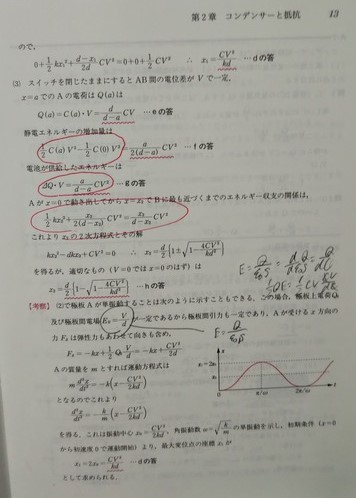 第2章 コンデンサーと抵抗 13
ので,
0+1/2 kx₁²+(d-x₁)/2d CV²=0+0+1/2 CV² ∴ x₁=CV²/kd …dの答
(3) スイッチを閉じたままにするとAB間の電位差がVで一定,
x=aでのAの電荷はQ(a)は
Q(a)=C(a)・V=d/(d-a) CV …eの答
静電エネルギーの増加量は
1/2 C(a)V²-1/2 C(0)V²=a/2(d-a) CV² …fの答
電池が供給したエネルギーは
ΔQ・V=a/(d-a) CV² …gの答
Aがx=0で動き出してからx=x₂でBに最も近づくまでのエネルギー収支の関係は,
1/2 kx₂²+x₂/2(d-x₂) CV²=x₂/(d-x₂) CV²
これよりx₂の2次方程式とその解
kx₂²-dkx₂+CV²=0 ∴ x₂=d/2{1±√(1-4CV²/kd²)}
を得るが, 適切なもの (V=0ではx=0のはず) は
x₂=d/2{1-√(1-4CV²/kd²)} …hの答
【考察】(2)で極板Aが単振動することは次のように示すこともできる。この場合, 極板上電荷Q₀
及び極板間電場E₀=V/dが一定であるから極板間引力も一定であり, Aが受けるx方向の
力Fₓは弾性力もあわせて向きも含め,
Fₓ=-kx+1/2 Q₀V/d=-kx+CV²/2d
Aの質量をmとすれば運動方程式は
m d²x/dt²=-k(x-CV²/2kd)
となるのでこれより
d²x/dt²=-k/m(x-CV²/2kd)
を得る. これは振動中心x₀=CV²/2kd, 角振動数ω=√(k/m)の単振動を示し, 初期条件 (x=0
から初速度0で運動開始) より, 最大変位点の座標x₁が
x₁=2x₀=CV²/kd …dの答
として求められる.
x
x₁=2x₀
x₀
0
π/ω
2π/ω
t